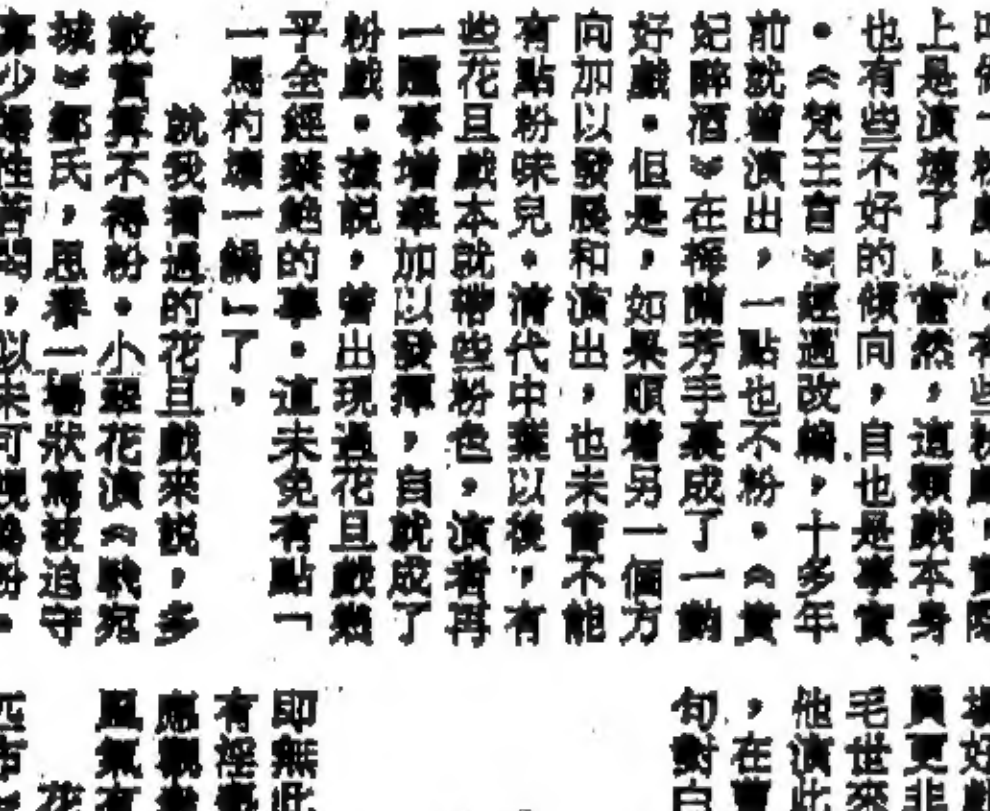 上是演壞了，當然，這類戲本身
也有些不好的傾向，自也是事實
。《梵王宮》經過改編，十多年
前就曾演出，一點也不粉。《貴
妃醉酒》在梅蘭芳手裏成了一齣
好戲。但是，如果順着另一個方
向加以發展和演出，也未嘗不能
有點粉味兒。清代中葉以後，有
些花旦戲本就帶些粉色，演者再
一隨事增華加以發揮，自就成了
粉戲。據說，曾出現過花旦戲幾
乎全經禁絕的事。這未免有點「
一馬杓壞一鍋」了。
就我看過的花旦戲來說，多
數當算不得粉。小翠花演《戰宛
城》鄒氏，思春一場狀寫
性苦悶，以未可視為粉。
句對白
，在
他演此
毛世來
員更非
即無此
有淫
花